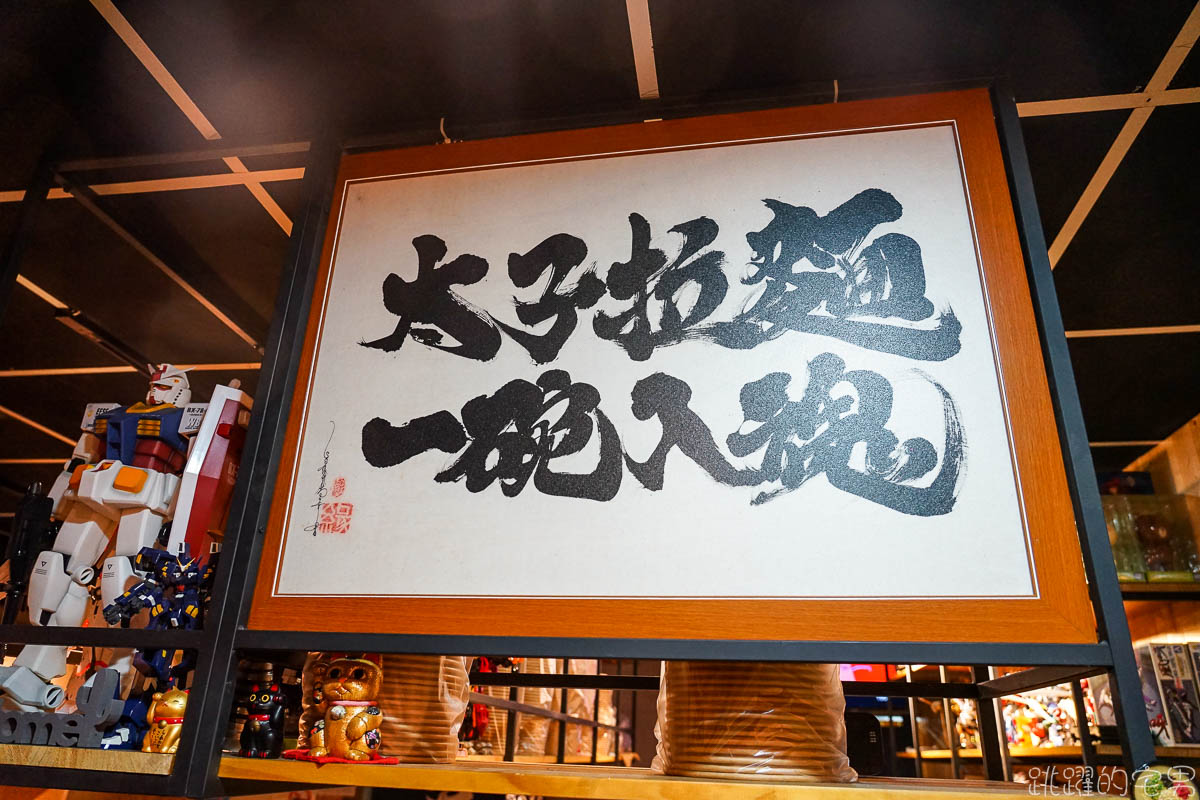 太子拉麵
一碗入魂
RX-78
ome
跳躍的宅男